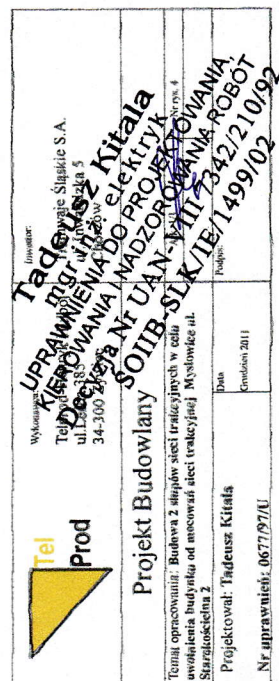 Tel
Prod
Wykonawca:
34-300
Inwestor:
Tramwaje Śląskie S.A.
Chorzów
Projekt Budowlany
Nr rys. 4
Temat opracowania: Budowa 2 słupów sieci trakcyjnych w celu
uwolnienia budynku od mocowań sieci trakcyjnej Mysłowice ul.
Starokościelna 2
Projektował: Tadeusz Kitala
Data
Grudzień 2011
Podpis:
Nr uprawnień: 0677/97/U
Tadeusz Kitala
mgr inż. elektryk
UPRAWNIENIA DO PROJEKTOWANIA,
KIEROWANIA I NADZOROWANIA ROBÓT
Decyzja Nr UAN-VIII-7342/210/92
SOIIB-SLK/IE/1499/02